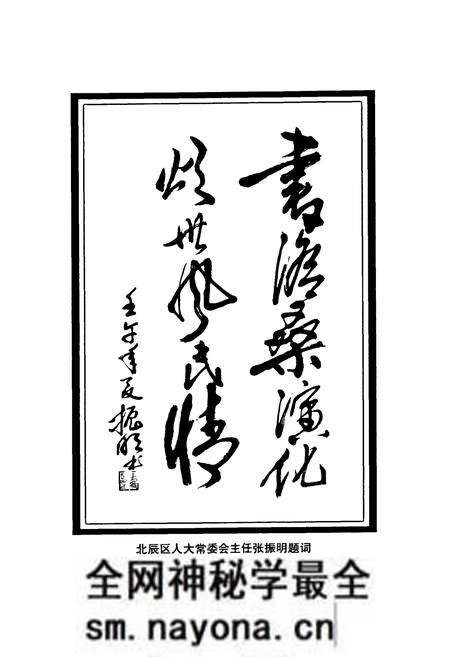 書滄桑演化
頌世風民情
壬午年夏振明書
北辰区人大常委会主任张振明题词
全网神秘学最全
sm.nayona.cn